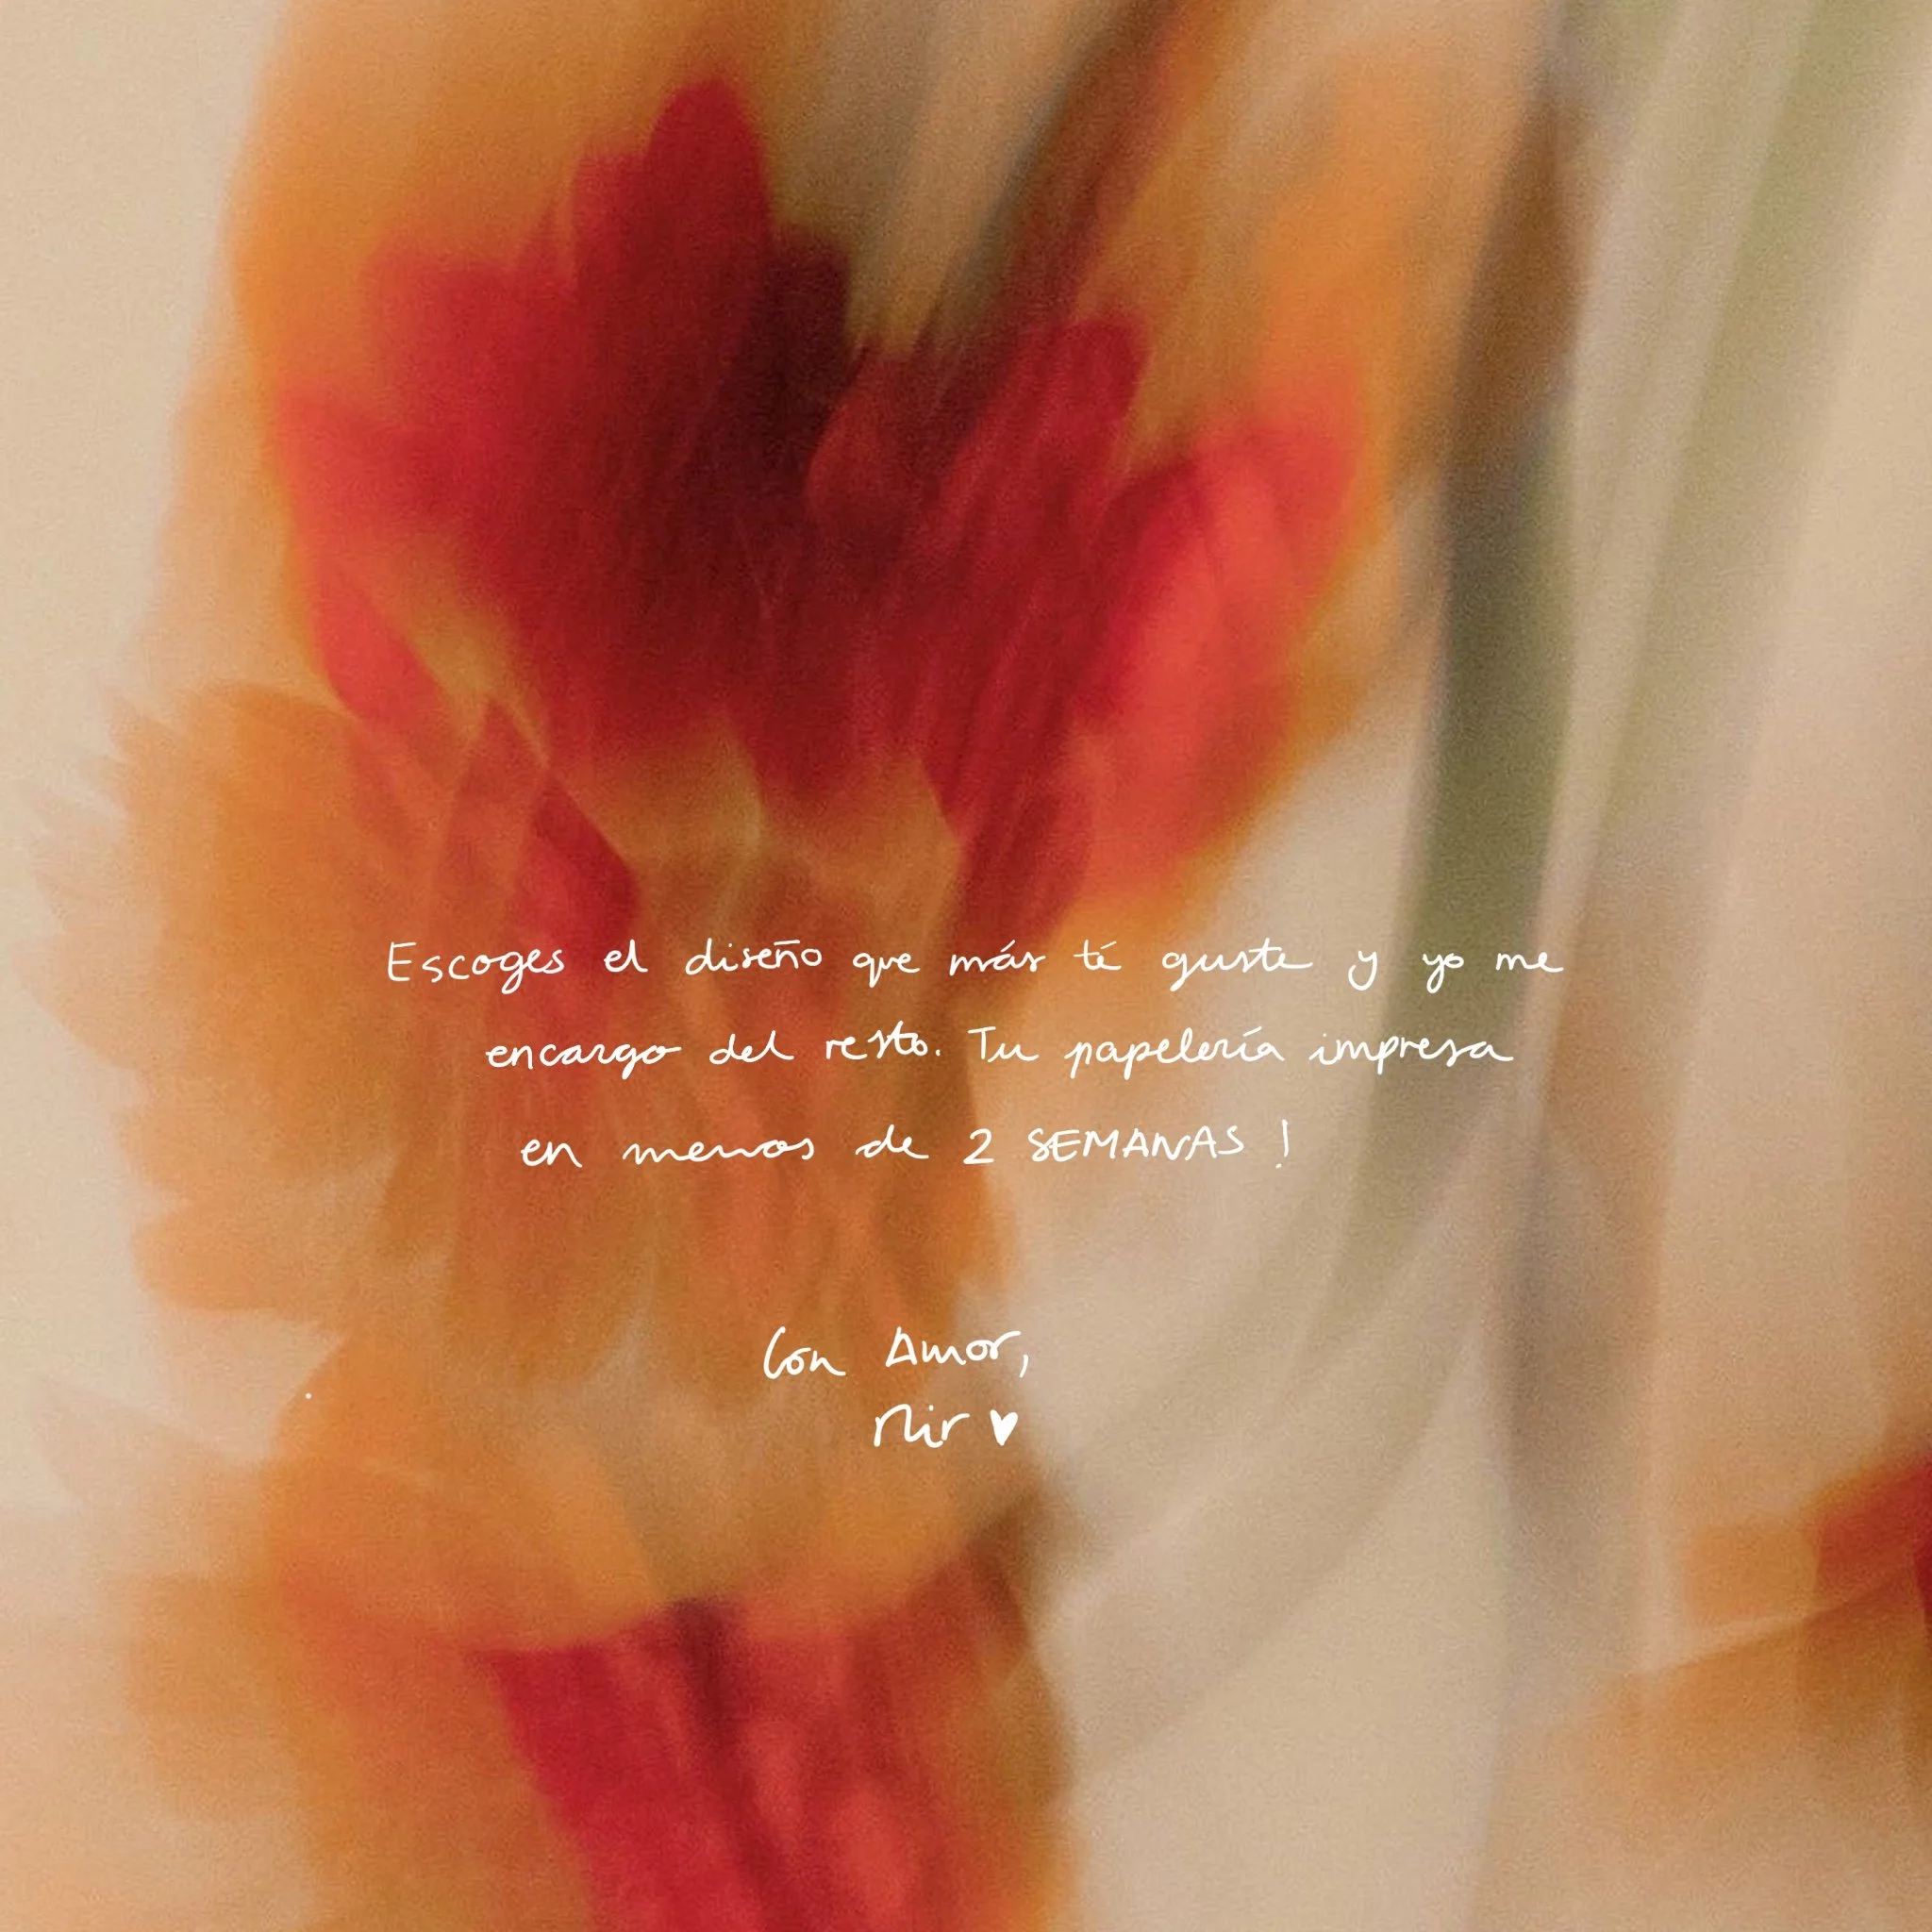 Escoges el diseño que más té guste y yo me
encargo del resto. Tu papelería impresa
en menos de 2 SEMANAS !
Con Amor,
Mir ♥